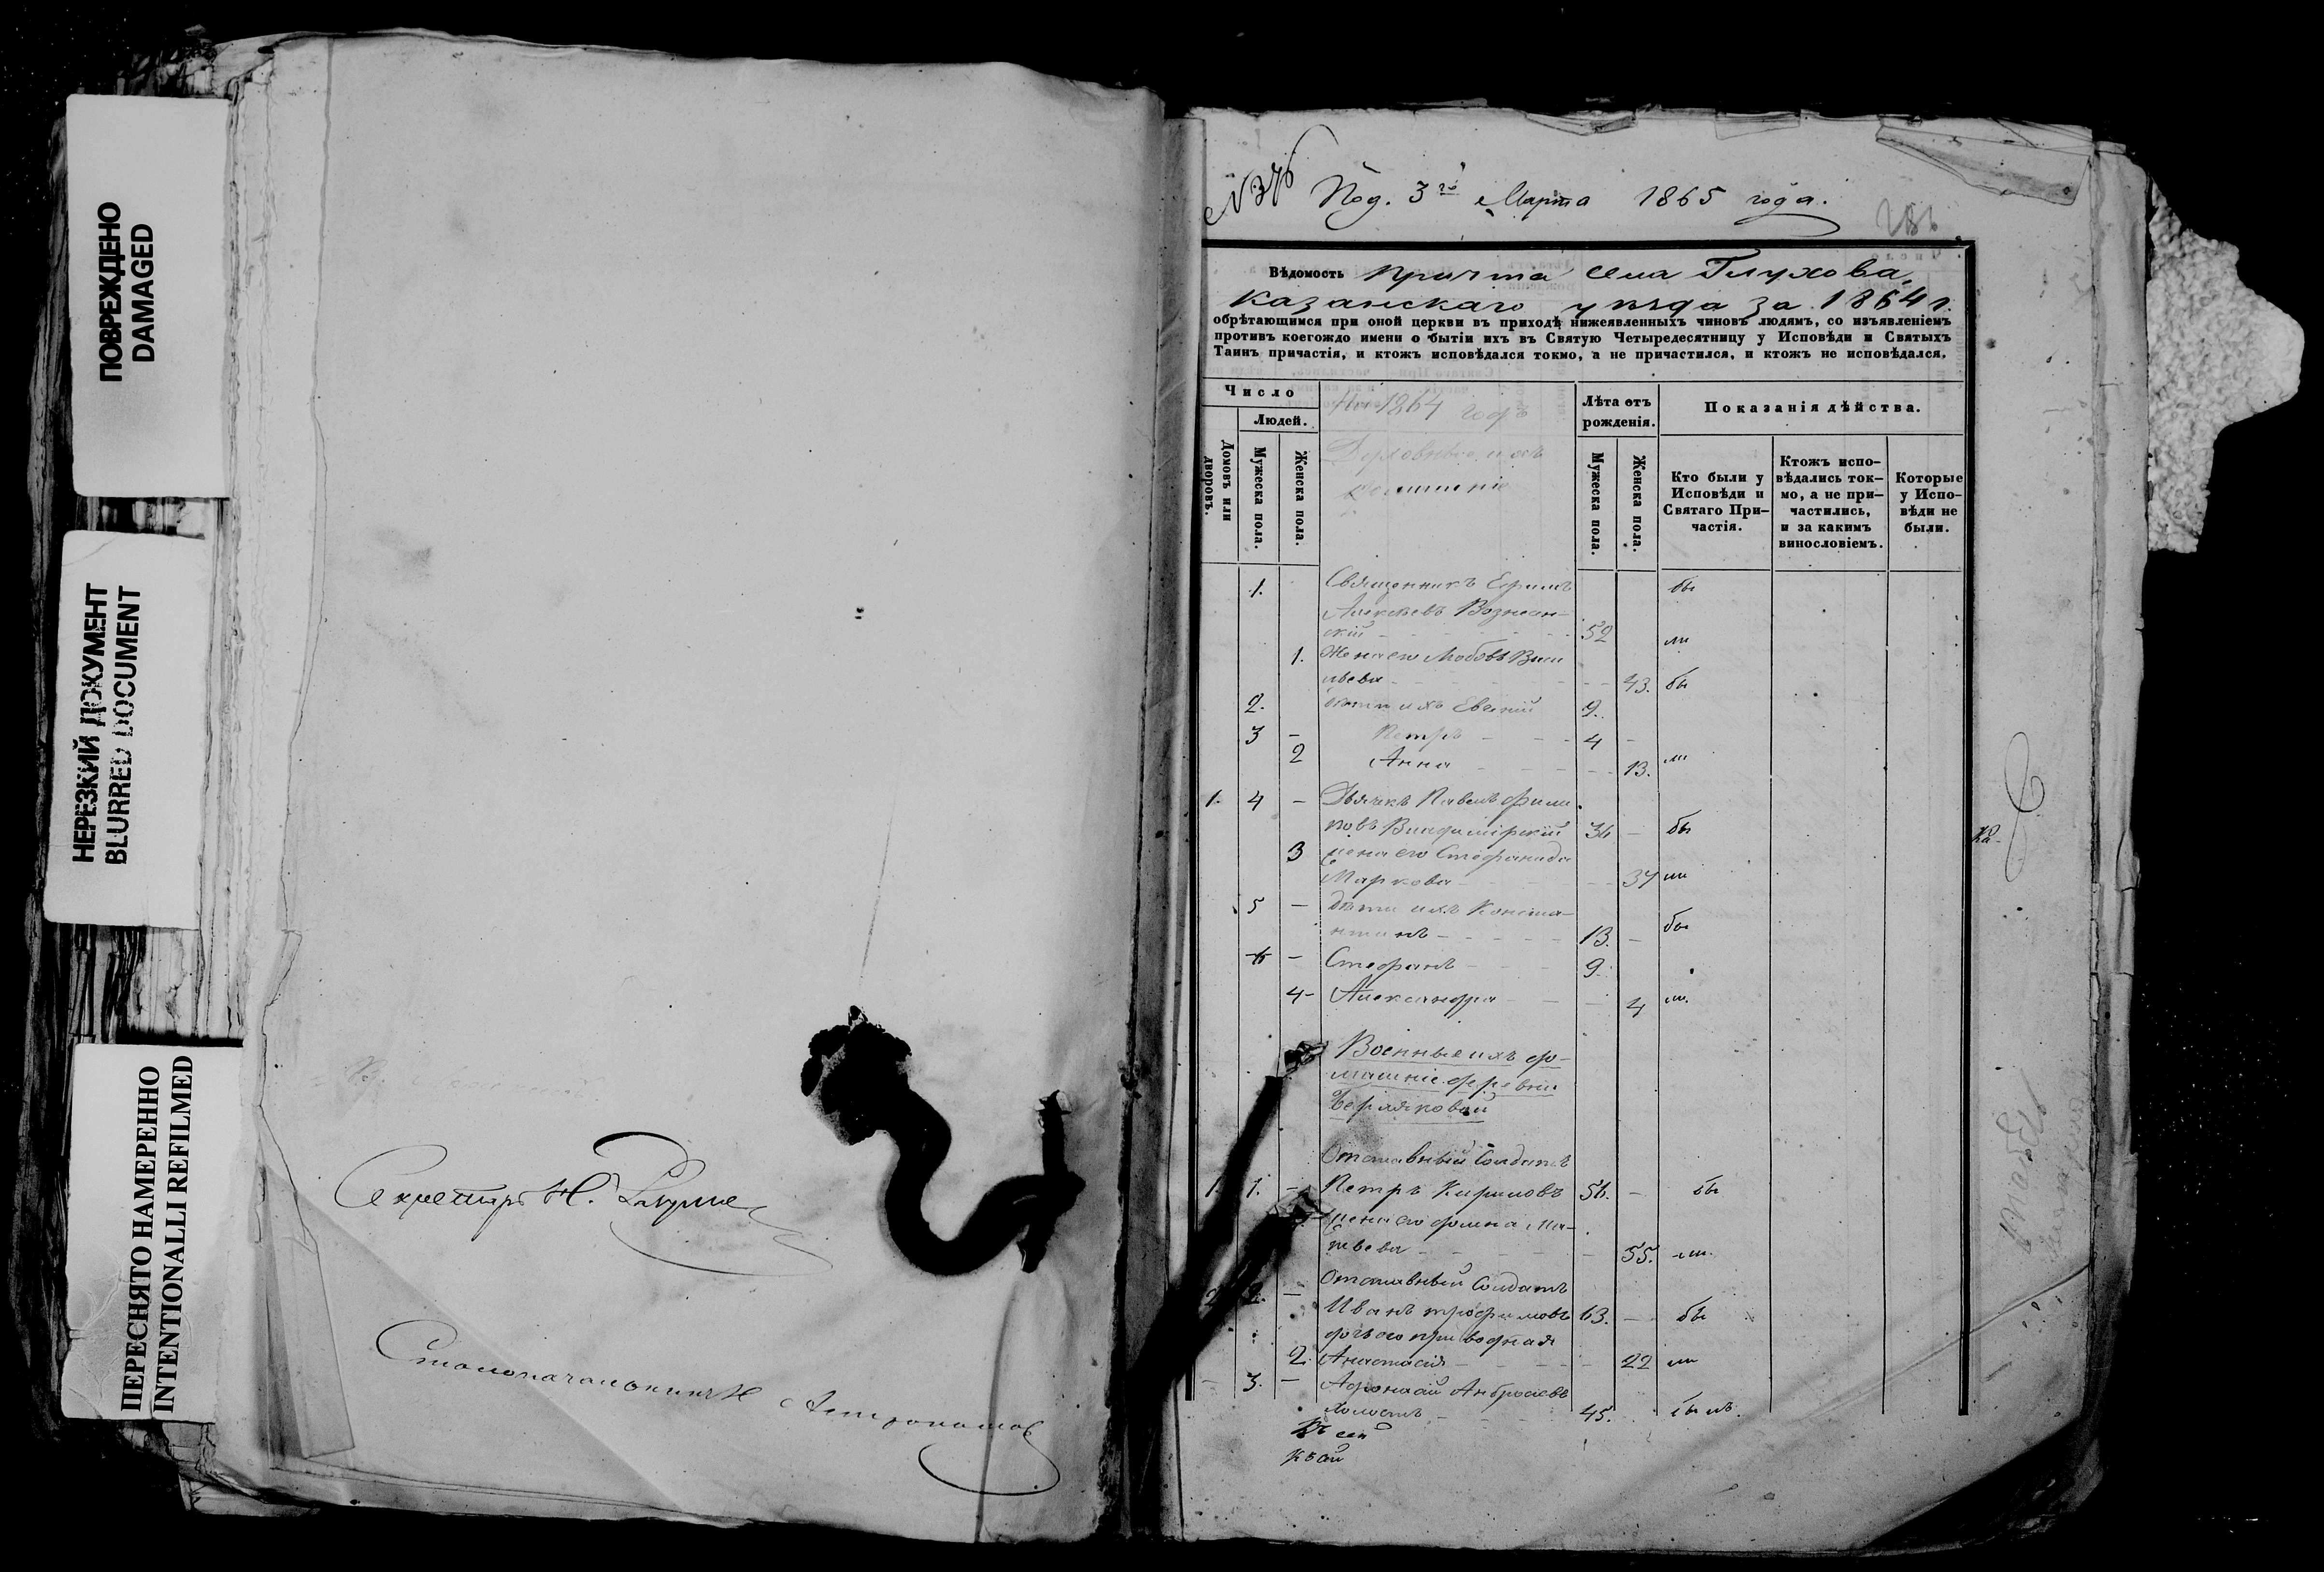 ПОВРЕЖДЕНО
DAMAGED
НЕРЕЗКИЙ ДОКУМЕНТ
BLURRED DOCUMENT
ПЕРЕСНЯТО НАМЕРЕННО
INTENTIONALLI REFILMED
Секретарь Н.
Столоначальникъ
№ 376
Под. 3го Марта 1865 года.
Вѣдомость причта села Глухова,
Казанскаго уѣзда за 1864 г.
обрѣтающимся при оной церкви въ приходѣ нижеявленныхъ чиновъ людямъ, со изъявленіемъ
противъ коегождо имени о бытіи ихъ въ Святую Четыредесятницу у Исповѣди и Святыхъ
Таинъ причастія, и ктожъ исповѣдался токмо, а не причастился, и ктожъ не исповѣдался.
Число
Людей.
Домовъ или дворовъ.
Мужеска пола.
Женска пола.
На 1864 годъ
Духовные и ихъ
домашніе
Лѣта отъ
рожденія.
Мужеска пола.
Женска пола.
Показанія дѣйства.
Кто были у
Исповѣди и
Святаго При-
частія.
Ктожъ испо-
вѣдались ток-
мо, а не при-
частились,
и за какимъ
винословіемъ.
Которые
у Испо-
вѣди не
были.
1. Священникъ Ефимъ бы
Алексѣевъ Вознесен-
скій 52 ли
1. Жена его Любовь Васи
льева 43. бы
2. дѣти ихъ Евгеній 9.
3 - Петръ 4 -
2 Анна 13. ли
1. 4 - Дьячекъ Павелъ Филип
повъ Владимірскій 36 - бы
3 жена его Стефанида
Маркова 37 ли
5 - дѣти ихъ Конста-
нтинъ 13. - бы
6 - Стефанъ 9.
4 - Александра 4 ли.
Военные и ихъ до-
машніе деревни
Отставный Солдатъ
1. 1. - Петръ Кириловъ 56. - бы
жена его
55. ли.
Отставный Солдатъ
2 2. - Иванъ Трофимовъ 63. - бы
дочь его приводная
2. Анастасія 22 ли
- 3. - Амбросіевъ
холостъ 45. былъ.